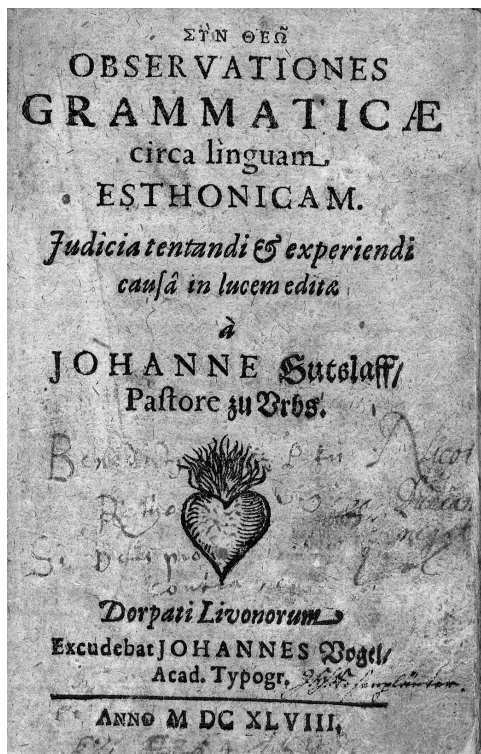 ΣῪΝ ΘΕΩ͂
OBSERVATIONES
GRAMMATICÆ
circa linguam
ESTHONICAM.
Judicia tentandi & experiendi
cauſâ in lucem editæ
à
JOHANNE Gutslaff/
Paſtore zu Vrbs.
Dorpati Livonorum
Excudebat JOHANNES Vogel/
Acad. Typogr.
ANNO M DC XLVIII.